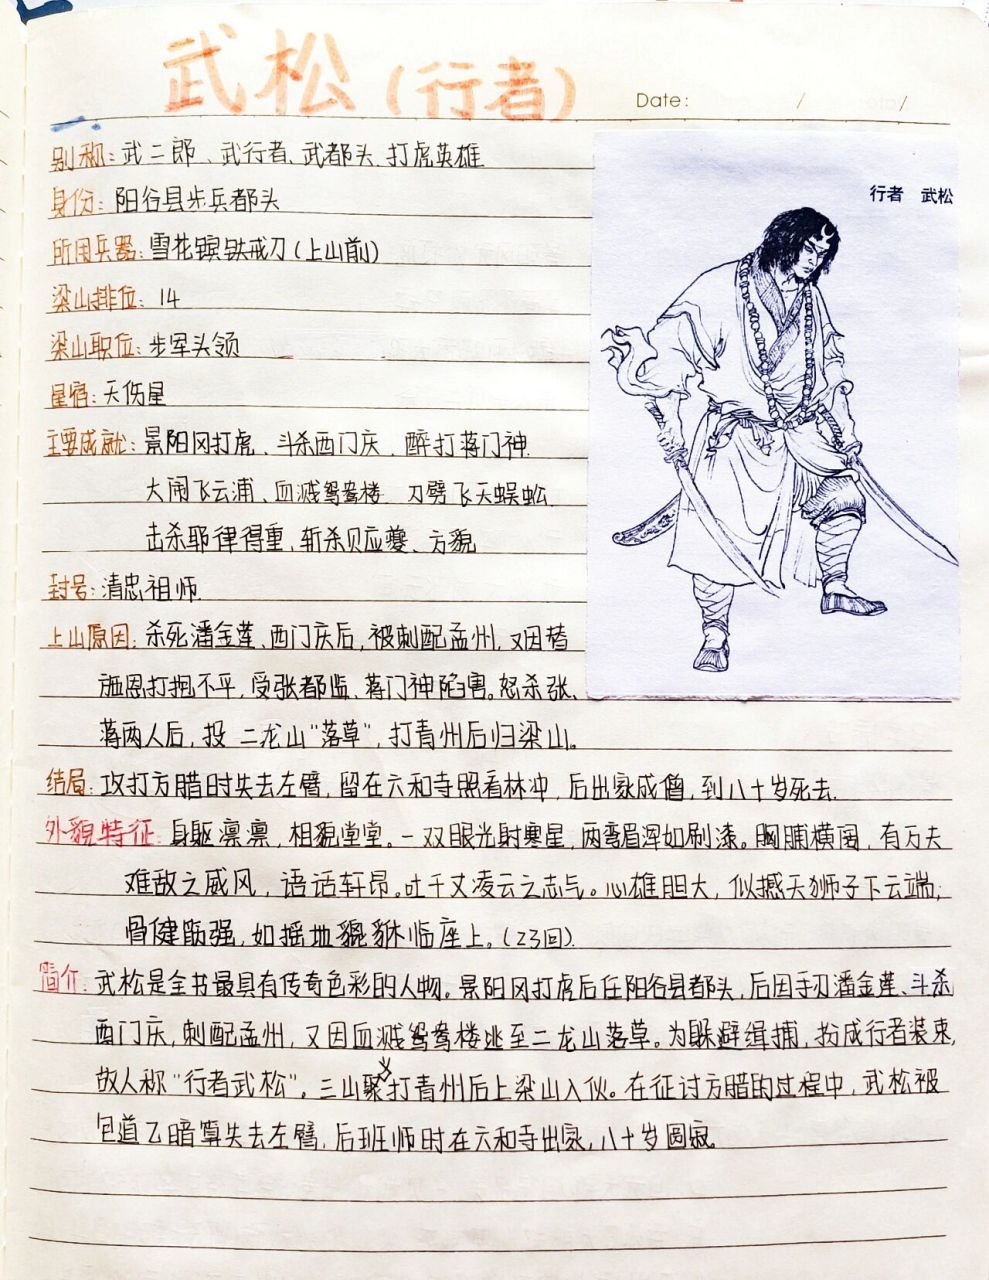 武松（行者）
Date: / /
别称：武二郎、武行者、武都头、打虎英雄
行者 武松
身份：阳谷县步兵都头
所用兵器：雪花镔铁戒刀（上山前）
梁山排位：14
梁山职位：步军头领
星宿：天伤星
主要成就：景阳冈打虎、斗杀西门庆、醉打蒋门神
大闹飞云浦、血溅鸳鸯楼、刀劈飞天蜈蚣
击杀耶律得重，斩杀贝应夔、方貌
封号：清忠祖师
上山原因：杀死潘金莲、西门庆后，被刺配孟州，又因替
施恩打抱不平，受张都监、蒋门神陷害。怒杀张、
蒋两人后，投二龙山“落草”，打青州后归梁山。
结局：攻打方腊时失去左臂，留在六和寺照看林冲，后出家成僧，到八十岁死去.
外貌特征：身躯凛凛，相貌堂堂。一双眼光射寒星，两弯眉浑如刷漆。胸脯横阔，有万夫
难敌之威风，语话轩昂。吐千丈凌云之志气。心雄胆大，似撼天狮子下云端；
骨健筋强，如摇地貔貅临座上。（23回）.
简介：武松是全书最具有传奇色彩的人物。景阳冈打虎后任阳谷县都头，后因手刃潘金莲、斗杀
西门庆，刺配孟州，又因血溅鸳鸯楼逃至二龙山落草。为躲避缉捕，扮成行者装束，
故人称“行者武松”。三山聚义打青州后上梁山入伙。在征讨方腊的过程中，武松被
包道乙暗算失去左臂，后班师时在六和寺出家，八十岁圆寂。